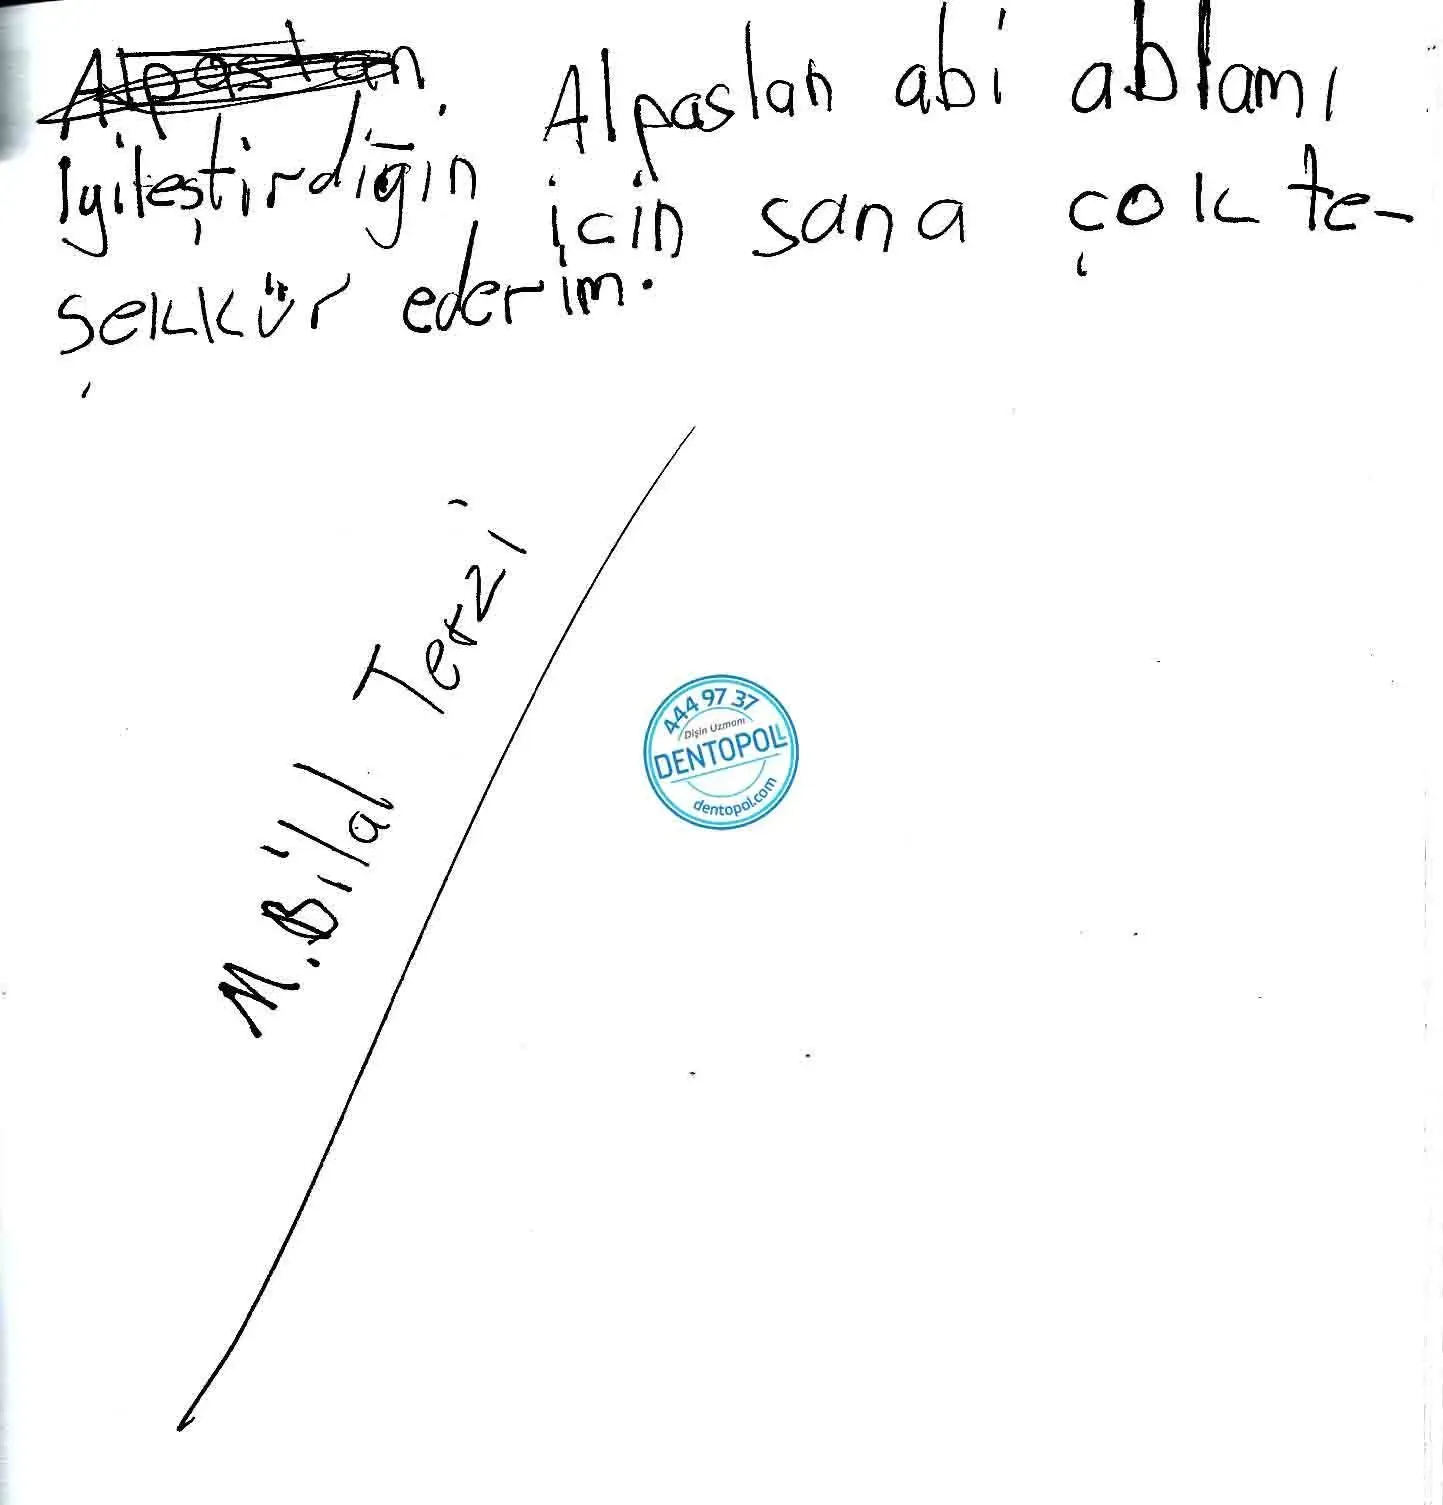 Alpaslan. Alpaslan abi ablamı
iyileştirdiğin için sana çok te-
şekkür ederim.
M. Bilal Terzi
444 97 37
Dişin Uzmanı
DENTOPOL
dentopol.com